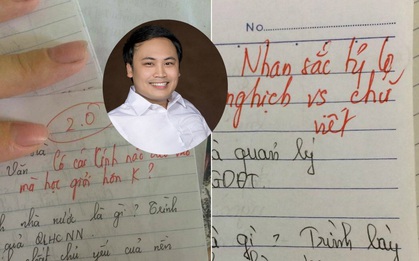 2.0
Văn
Có cái tính nào
mà học giỏi hơn K?
nhà nước là gì? Trình
quả QLHCNN
chủ yếu của nền
No.
Nhan sắc tỷ lệ
nghịch vs chữ
viết
quản lý
GDĐT.
là gì? Trình bày